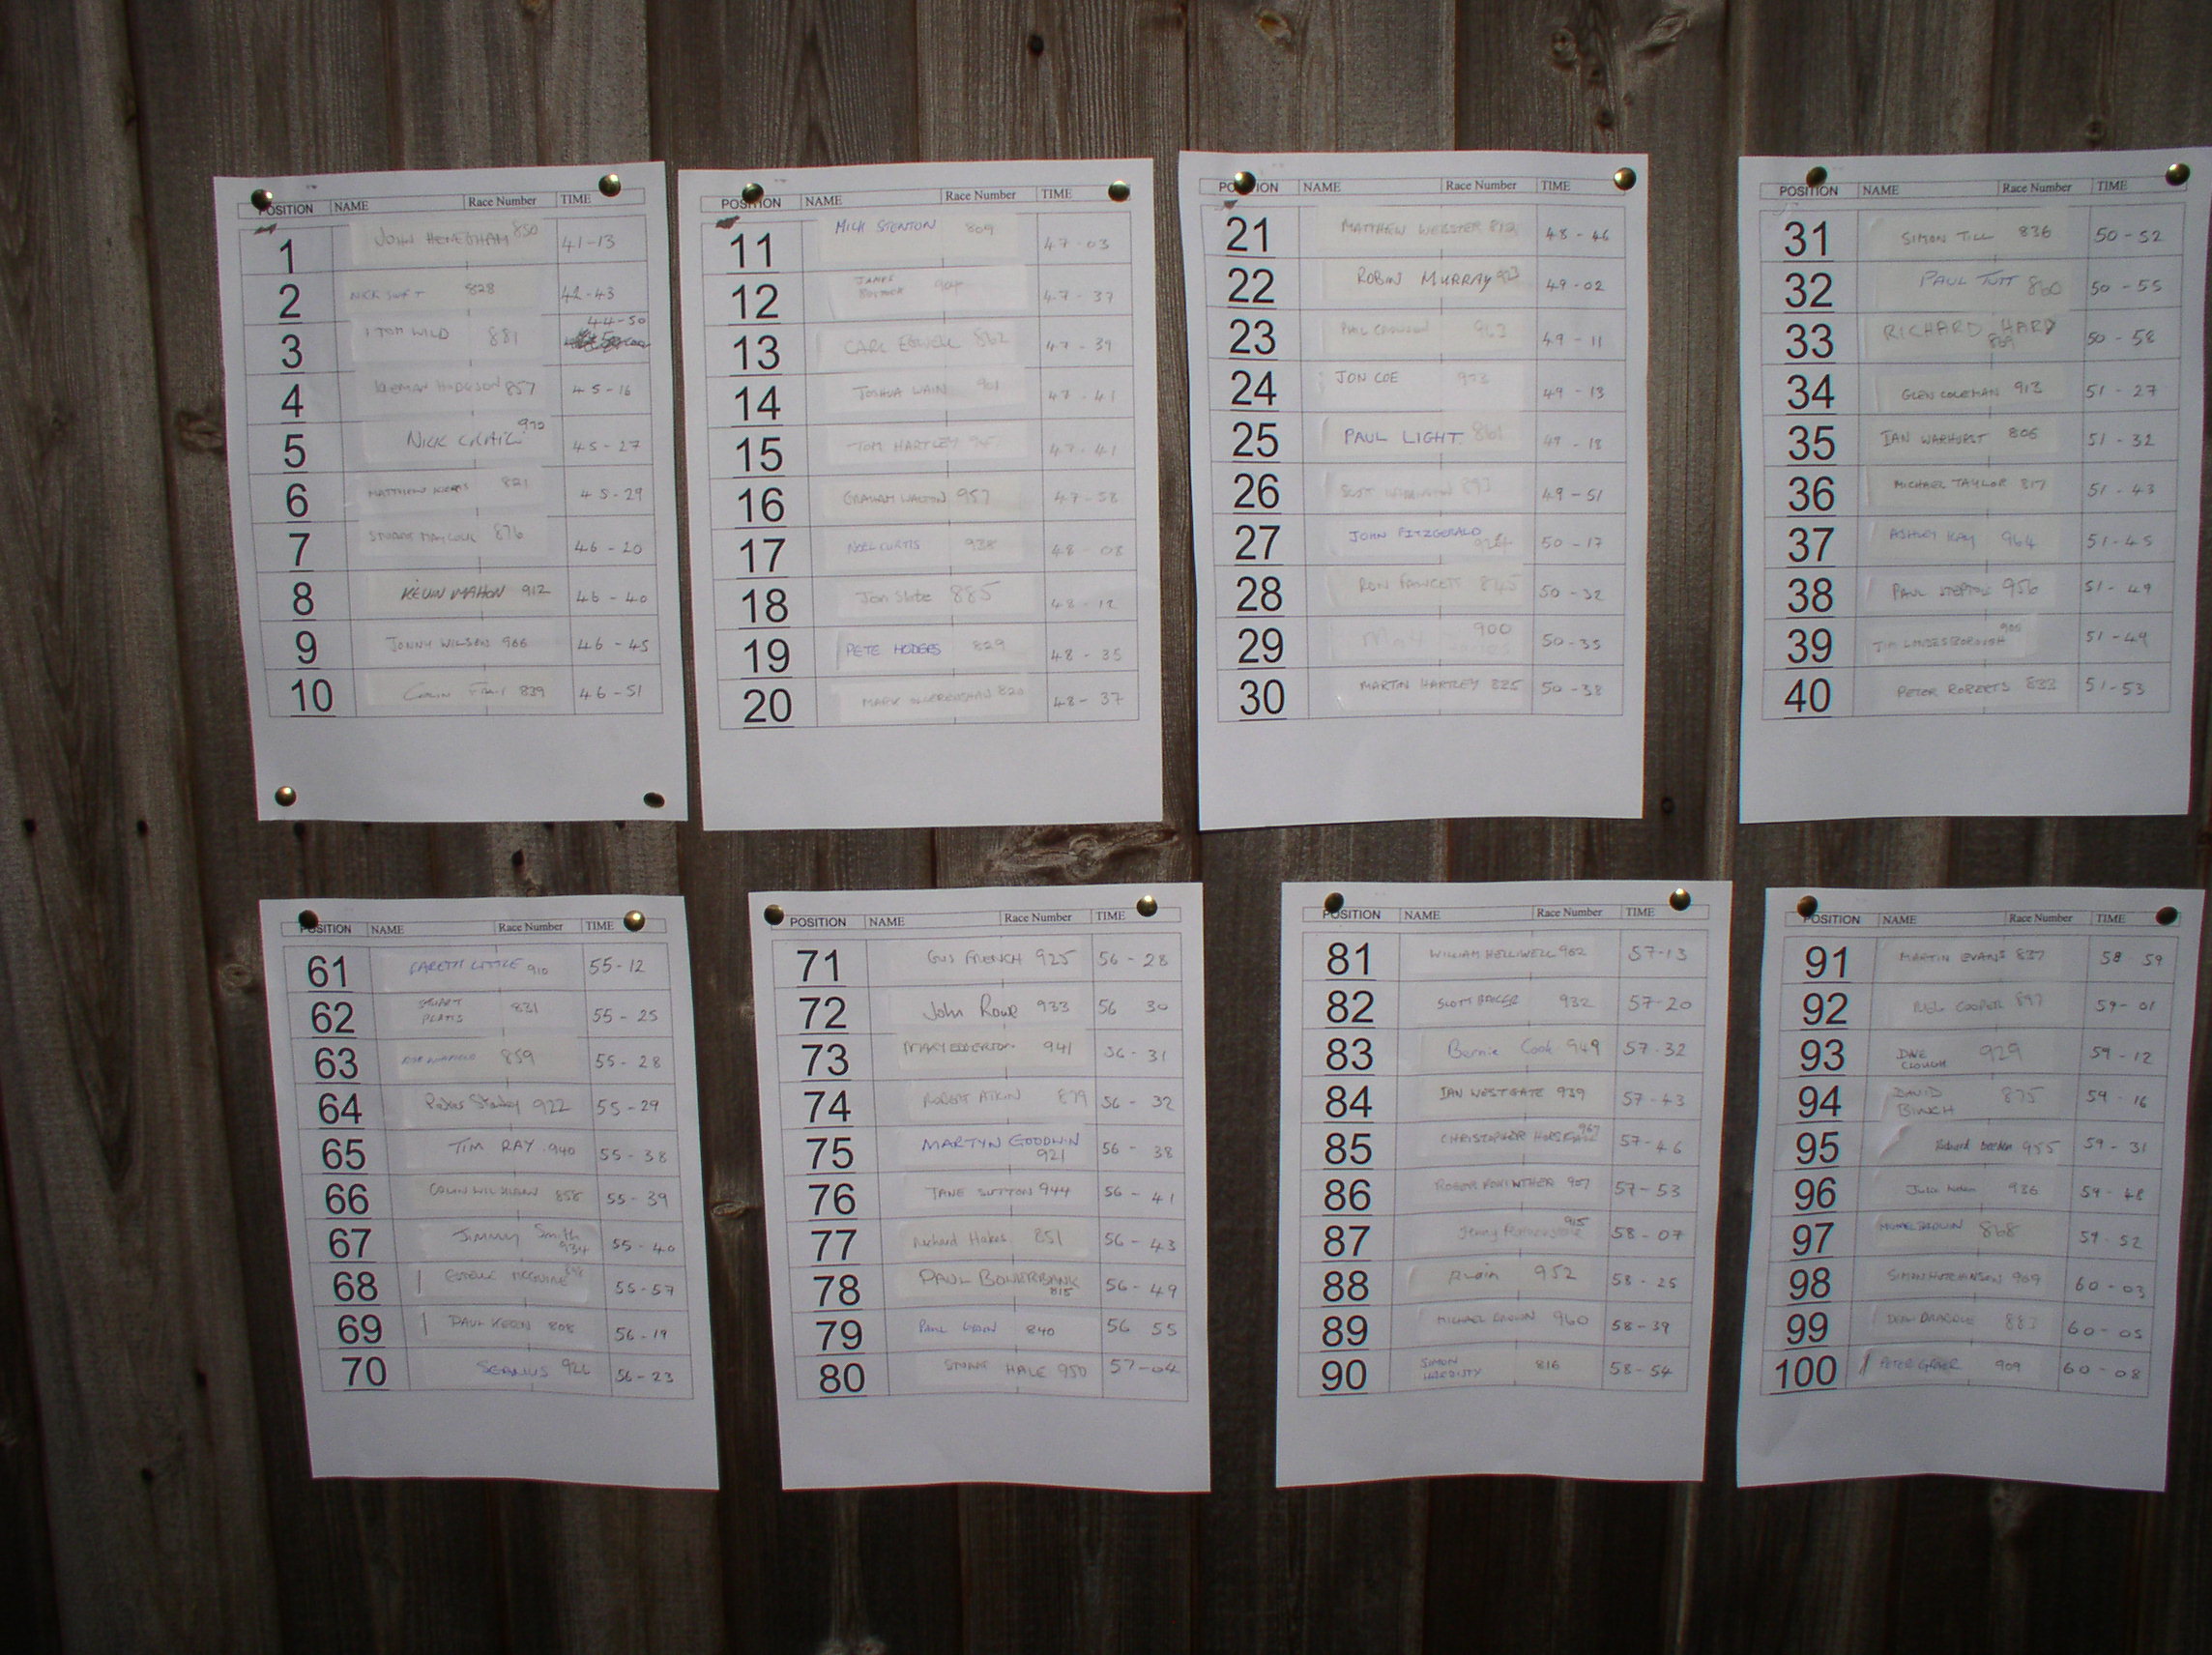 POSITION NAME Race Number TIME
1 JOHN 850 41-13
2 NICK 828 42-43
3 TOM WILD 881 44-50
4 HODGSON 857 45-16
5 NICK CRAIG 45-27
6 MATTHEW 821 45-29
7 STUART MAYCOCK 876 46-20
8 KEVIN MAHON 912 46-40
9 JONNY WILSON 966 46-45
10 COLIN 839 46-51
POSITION NAME Race Number TIME
11 MICK STENTON 809 47-03
12 JAMES 904 47-37
13 CARL 862 47-39
14 JOSHUA WAIN 901 47-41
15 TOM HARTLEY 47-41
16 GRAHAM WALTON 957 47-58
17 NOEL CURTIS 928 48-08
18 Jon Slate 885 48-12
19 PETE HODGES 829 48-35
20 MARK 820 48-37
POSITION NAME Race Number TIME
21 MATTHEW WEBSTER 812 48-46
22 ROBIN MURRAY 923 49-02
23 963 49-11
24 JON COE 49-13
25 PAUL LIGHT 861 49-18
26 893 49-51
27 JOHN FITZGERALD 50-17
28 RON FAWCETT 845 50-32
29 900 50-35
30 MARTIN HARTLEY 825 50-38
POSITION NAME Race Number TIME
31 SIMON TILL 836 50-52
32 PAUL TUTT 860 50-55
33 RICHARD HARD 50-58
34 GLEN COLEMAN 913 51-27
35 IAN WARHURST 806 51-32
36 MICHAEL TAYLOR 817 51-43
37 ASHLEY KAY 964 51-45
38 PAUL 956 51-49
39 TIM LONDESBOROUGH 905 51-49
40 PETER ROBERTS 833 51-53
POSITION NAME Race Number TIME
61 GARETH LITTLE 910 55-12
62 STUART
PLATTS 831 55-25
63 859 55-28
64 Peter Stanley 922 55-29
65 TIM RAY 940 55-38
66 COLIN 856 55-39
67 JIMMY Smith
934 55-40
68 ESTELLE MCGUIRE 55-57
69 PAUL KEEN 808 56-19
70 SEAMUS 926 56-23
POSITION NAME Race Number TIME
71 GUS FRENCH 925 56-28
72 John Rowe 933 56 30
73 MARY EDGERTON 941 56-31
74 ROBERT ATKIN 879 56-32
75 MARTYN GOODWIN
921 56-38
76 JANE SUTTON 944 56-41
77 Richard Hakes 851 56-43
78 PAUL BOWERBANK
815 56-49
79 PAUL 840 56 55
80 STUART HALE 950 57-04
POSITION NAME Race Number TIME
81 WILLIAM HELLIWELL 902 57-13
82 SCOTT BAKER 932 57-20
83 Bernie Cook 949 57-32
84 IAN WESTGATE 939 57-43
85 CHRISTOPHER HORSFALL 967 57-46
86 ROGER 907 57-53
87 Jenny 915 58-07
88 952 58-25
89 MICHAEL BROWN 960 58-39
90 SIMON 816 58-54
POSITION NAME Race Number TIME
91 MARTIN EVANS 837 58 59
92 NEIL COOPER 897 59-01
93 DAVE
CLOUGH 929 59-12
94 DAVID
BINCH 875 59-16
95 Richard 955 59-31
96 Julia 936 59-48
97 BROWN 868 59-52
98 SIMON HUTCHINSON 969 60-03
99 DEAN 883 60-05
100 PETER 909 60-08